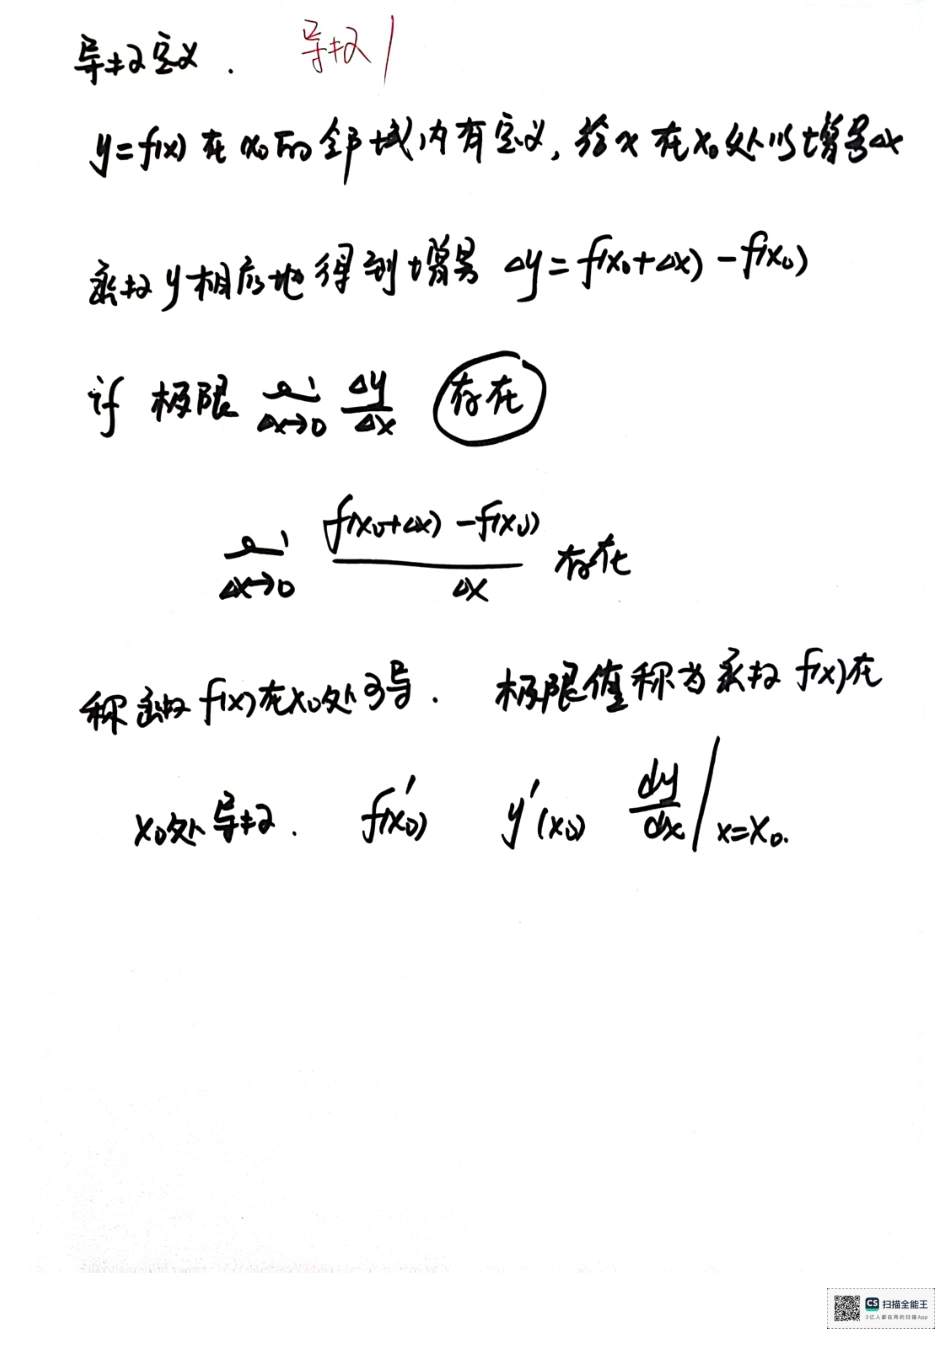 导数定义. 导数1
y=f(x)在x₀的邻域内有定义,给x在x₀处以增量Δx
函数y相应地得到增量 Δy=f(x₀+Δx)-f(x₀)
if 极限 lim Δx→0 Δy/Δx 存在
lim Δx→0 (f(x₀+Δx)-f(x₀))/Δx 存在
称函数f(x)在x₀处可导. 极限值称为函数f(x)在
x₀处导数. f'(x₀) y'(x₀) dy/dx|x=x₀.
CS 扫描全能王
3亿人都在用的扫描App